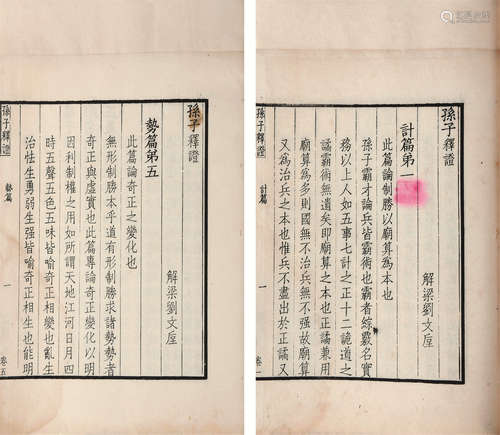 孫子釋證
解梁劉文垕
計篇第一
此篇論制勝以廟算為本也
孫子霸才論兵皆霸術也霸者綜覈名實
務以上人如五事七計之正十二詭道之
譎霸術無遺矣即廟算之本也正譎兼用
廟算為多則國無不治兵無不強故廟算
又為治兵之本也惟兵不盡出於正譎又
孫子釋證
計篇
一
孫子釋證
解梁劉文垕
勢篇第五
此篇論奇正之變化也
無形制勝本乎道有形制勝求諸勢勢者
奇正與虛實也此篇專論奇正變化以明
因利制權之用如所謂天地江河日月四
時五聲五色五味皆喻奇正變化也亂生
治怯生勇弱生強皆喻奇正相生也能明
孫子釋證
勢篇
一
卷五